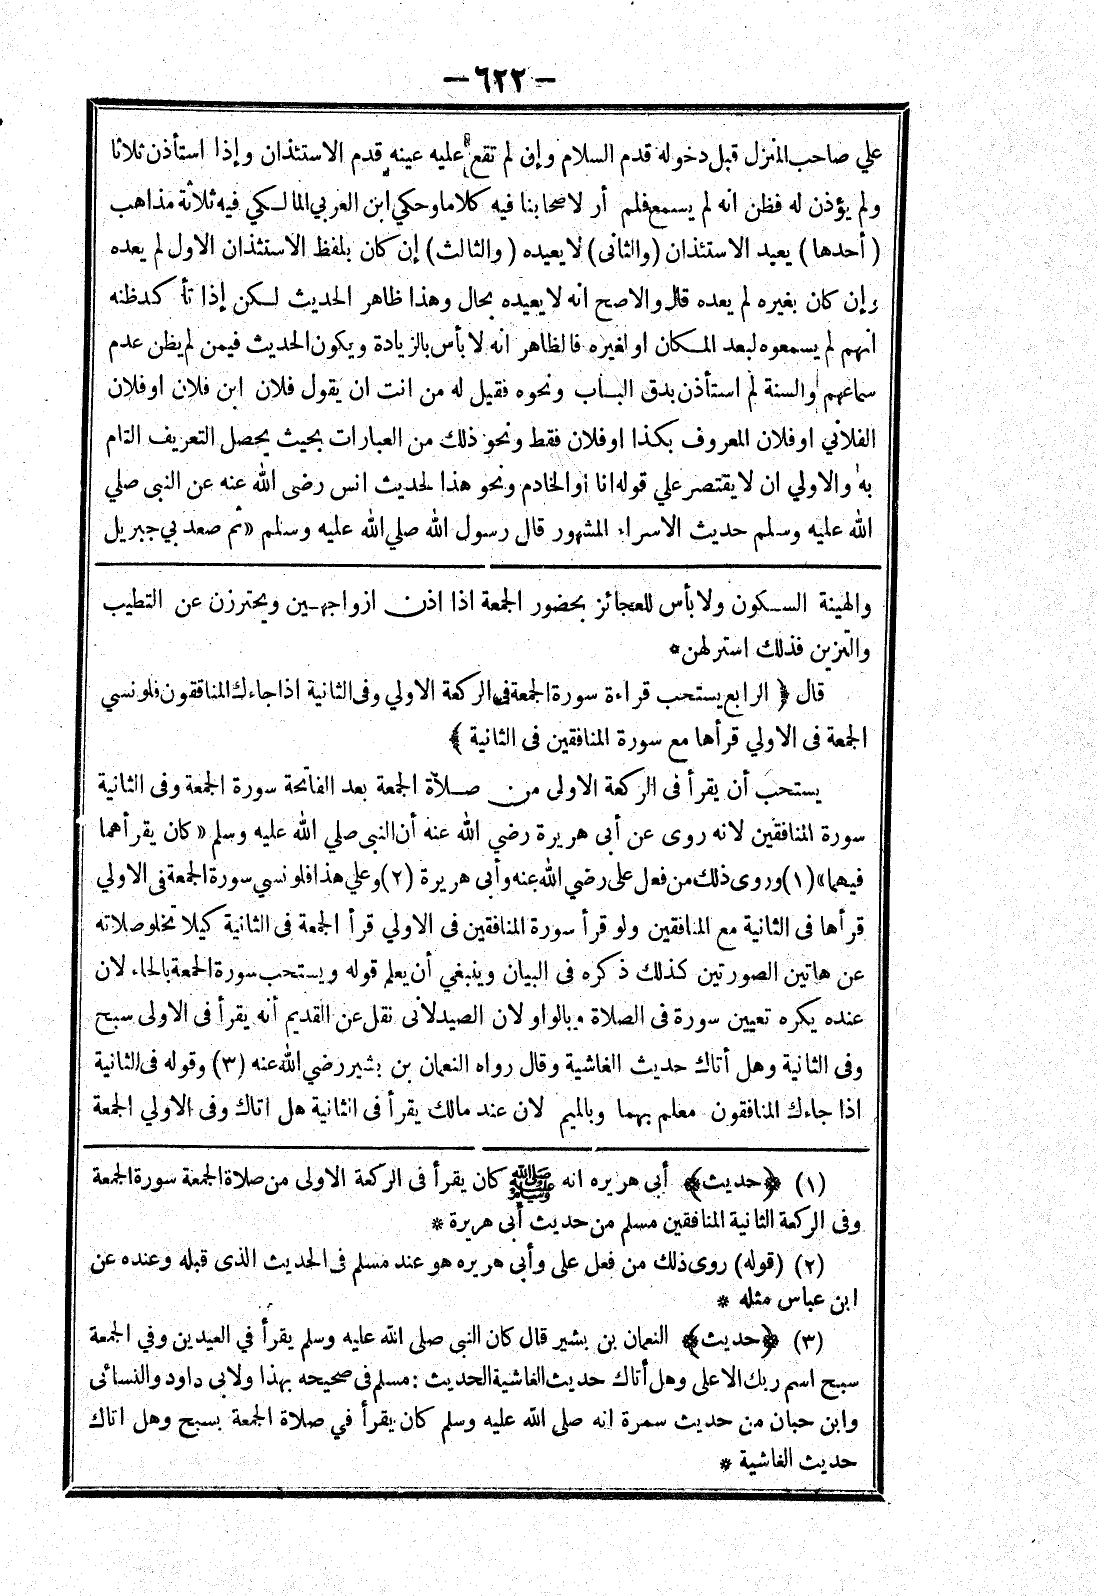 — ٦٢٢ —
علي صاحب المنزل قبل دخوله قدم السلام وإن لم تقع عليه عينه قدم الاستئذان وإذا استأذن ثلاثا
ولم يؤذن له فظن انه لم يسمع فلم أر لاصحابنا فيه كلاما وحكي ابن العربي المالكي فيه ثلاثة مذاهب
( أحدها ) يعيد الاستئذان (والثانى) لا يعيده ( والثالث ) إن كان بلفظ الاستئذان الاول لم يعده
وإن كان بغيره لم يعده قال والاصح انه لا يعيده بحال وهذا ظاهر الحديث لكن إذا تأكد ظنه
انهم لم يسمعوه لبعد المكان او لغيره فالظاهر انه لا بأس بالزيادة ويكون الحديث فيمن لم يظن عدم
سماعهم والسنة لم استأذن بدق الباب ونحوه فقيل له من انت ان يقول فلان ابن فلان او فلان
الفلاني او فلان المعروف بكذا او فلان فقط ونحو ذلك من العبارات بحيث يحصل التعريف التام
به والاولي ان لا يقتصر علي قوله انا او الخادم ونحو هذا لحديث انس رضى الله عنه عن النبى صلي
الله عليه وسلم حديث الاسراء المشهور قال رسول الله صلي الله عليه وسلم «ثم صعد بي جبريل
والهينة السكون ولا بأس للعجائز بحضور الجمعة اذا اذن ازواجهين ويحترزن عن التطيب
والتزين فذلك استر لهن *
قال ﴿ الرابع يستحب قراءة سورة الجمعة في الركعة الاولي وفى الثانية اذا جاءك المنافقون فلو نسي
الجمعة فى الاولي قرأها مع سورة المنافقين فى الثانية ﴾
يستحب أن يقرأ فى الركعة الاولى من صلاة الجمعة بعد الفاتحة سورة الجمعة وفى الثانية
سورة المنافقين لانه روى عن أبى هريرة رضي الله عنه أن النبى صلي الله عليه وسلم «كان يقرأهما
فيهما» (١) وروى ذلك من فعل على رضي الله عنه وأبى هريرة (٢) وعلي هذا فلو نسي سورة الجمعة فى الاولي
قرأها فى الثانية مع المنافقين ولو قرأ سورة المنافقين فى الاولي قرأ الجمعة فى الثانية كيلا تخلو صلاته
عن هاتين الصورتين كذلك ذكره فى البيان وينبغي أن يعلم قوله ويستحب سورة الجمعة بالحاء لان
عنده يكره تعيين سورة فى الصلاة وبالواو لان الصيدلانى نقل عن القديم أنه يقرأ فى الاولى سبح
وفى الثانية وهل أتاك حديث الغاشية وقال رواه النعمان بن بشير رضي الله عنه (٣) وقوله فى الثانية
اذا جاءك المنافقون معلم بهما وبالميم لان عند مالك يقرأ فى الثانية هل اتاك وفى الاولي الجمعة
(١) ﴿حديث﴾ أبى هريره انه ﷺ كان يقرأ فى الركعة الاولى من صلاة الجمعة سورة الجمعة
وفى الركعة الثانية المنافقين مسلم من حديث أبى هريرة *
(٢) (قوله) روى ذلك من فعل على وأبى هريره هو عند مسلم فى الحديث الذى قبله وعنده عن
ابن عباس مثله *
(٣) ﴿حديث﴾ النعمان بن بشير قال كان النبى صلى الله عليه وسلم يقرأ في العيدين وفي الجمعة
سبح اسم ربك الاعلى وهل أتاك حديث الغاشية الحديث : مسلم فى صحيحه بهذا ولابى داود والنسائى
وابن حبان من حديث سمرة انه صلى الله عليه وسلم كان يقرأ في صلاة الجمعة بسبح وهل اتاك
حديث الغاشية *